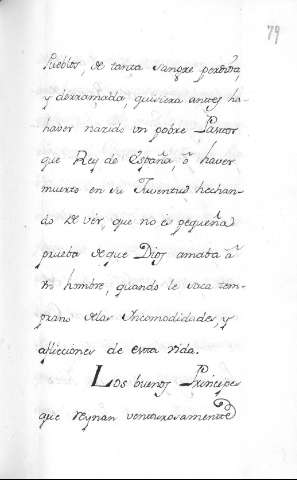 79
Pueblos, de tanta sangre perdida,
y derramada, quisiera antes ha-
haver nazido un pobre Pastor
que Rey de España, ô haver
muerto en su Juventud hechan-
do de vér, que no és pequeña
prueba de que Dios amaba â
un hombre, quando le saca tem-
prano delas Incomodidades, y
aflicciones de esta vida.
Los buenos Principes
que reynan venturosamente